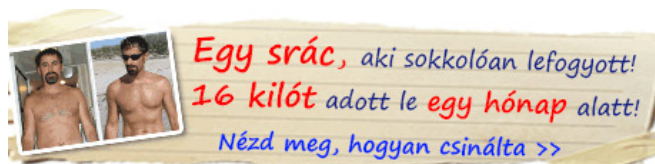 Egy srác, aki sokkolóan lefogyott!
16 kilót adott le egy hónap alatt!
Nézd meg, hogyan csinálta >>